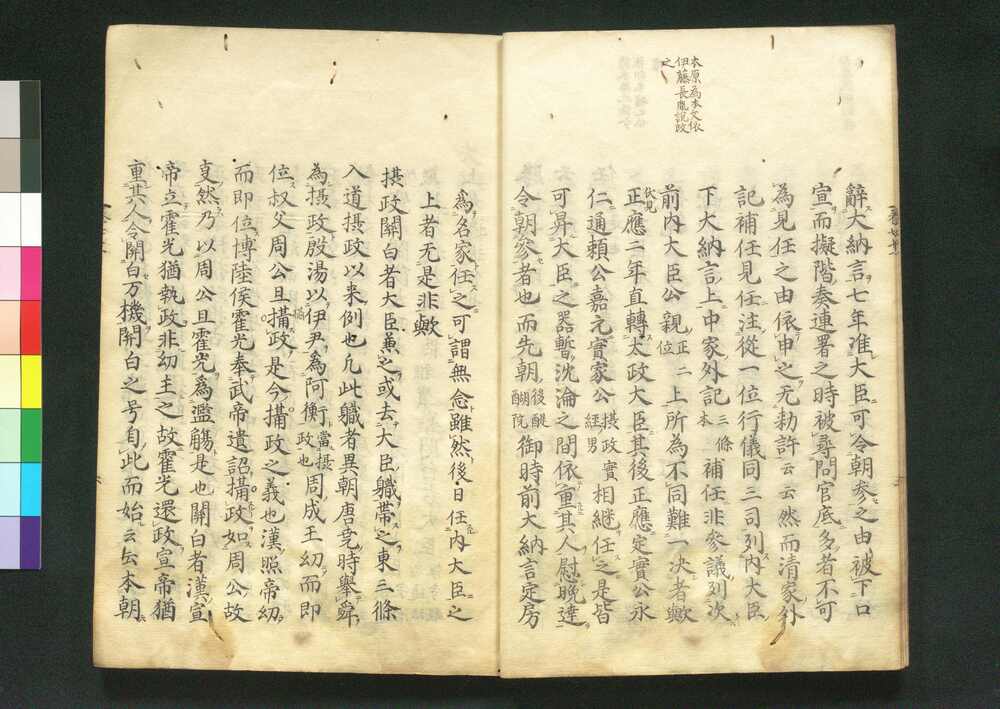 本原為本文依
伊藤長胤説改
之
辞大納言七年准大臣可令朝参之由被下口
宣而擬階奏連署之時被尋問官底多者不可
為見任之由依申之无勅許云云然而清家外
記補任見任注從一位行儀同三司列内大臣
下大納言上中家外記三條本補任非参議列次
前内大臣公親正二位上所為不同難一決者歟
伏見
正應二年直轉太政大臣其後正應定實公永
仁通頼公嘉元實家公摂政實経男相継任之是皆
可昇大臣之器暫沈淪之間依重其人慰晩達
令朝参者也而先朝後醍醐院御時前大納言定房
為名家任之可謂無念雖然後日任内大臣之
上者无是非歟
摂政關白者大臣兼之或去大臣職帯之東三條
入道摂政以来例也凡此職者異朝唐尭時擧舜
為摂政殷湯以伊尹為阿衡當摂政也周成王幼而即
位叔父周公旦搆政是今搆政之義也漢照帝幼
摂
而即位博陸侯霍光奉武帝遺詔搆政如周公故
事然乃以周公旦霍光為濫觴是也關白者漢宣
帝立霍光猶執政非幼主之故霍光還政宣帝猶
重其人令關白万機關白之号自此而始云尓本朝